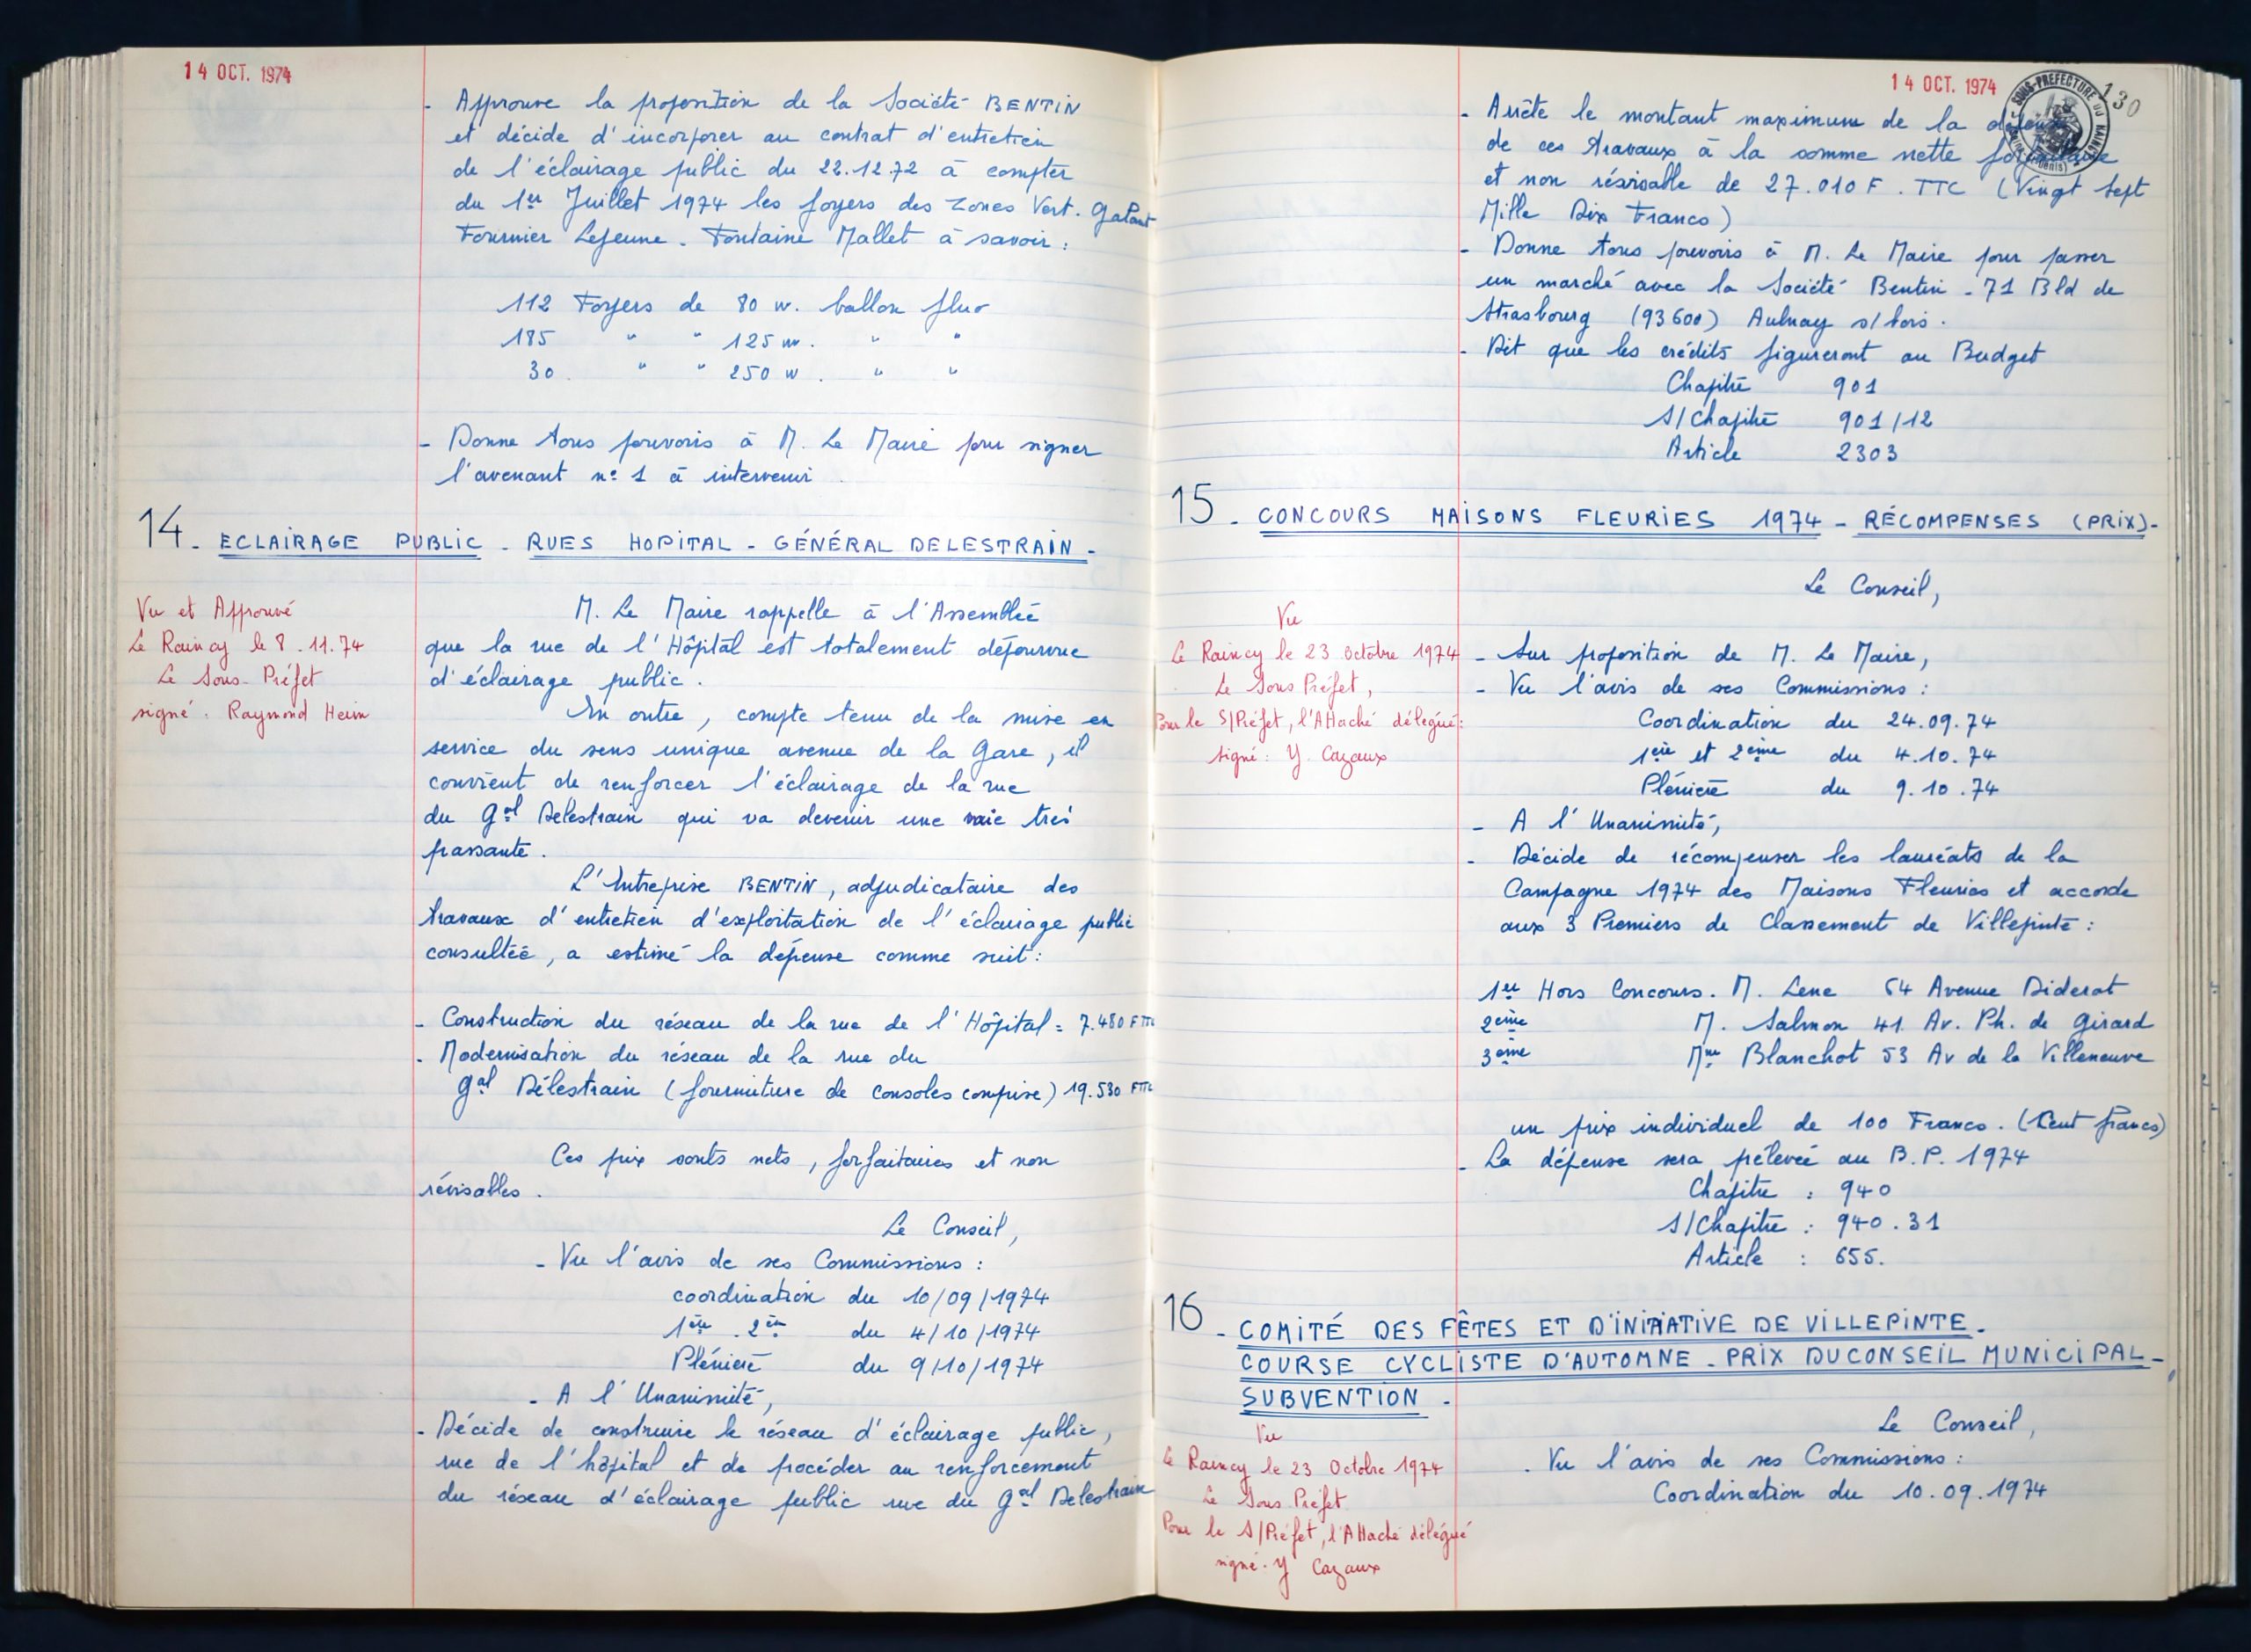 14 OCT. 1974
- Approuve la proposition de la Société BENTIN
et décide d'incorporer au contrat d'entretien
de l'éclairage public du 22.12.72 à compter
du 1er Juillet 1974 les foyers des zones Vert. Galant
Fournier Lejeune - Fontaine Mallet à savoir :
112 Foyers de 80 w. ballon fluo
185 " " 125 w. " "
30 " " 250 w. " "
- Donne tous pouvoirs à M. Le Maire pour signer
l'avenant n° 1 à intervenir
14 - ECLAIRAGE PUBLIC - RUES HOPITAL - GÉNÉRAL DELESTRAIN -
Vu et Approuvé
Le Raincy le 8.11.74
Le Sous-Préfet
signé : Raymond Heim
M. Le Maire rappelle à l'Assemblée
que la rue de l'Hôpital est totalement dépourvue
d'éclairage public.
En outre, compte tenu de la mise en
service du sens unique avenue de la Gare, il
convient de renforcer l'éclairage de la rue
du Gal Delestrain qui va devenir une voie très
passante.
L'Entreprise BENTIN, adjudicataire des
travaux d'entretien d'exploitation de l'éclairage public
consultée, a estimé la dépense comme suit :
- Construction du réseau de la rue de l'Hôpital = 7.480 F TTC
- Modernisation du réseau de la rue du
Gal Délestrain (fourniture de consoles comprise) 19.530 F TTC
Ces prix sonts nets, forfaitaires et non
révisables.
Le Conseil,
- Vu l'avis de ses Commissions :
coordination du 10/09/1974
1ère . 2ème du 4/10/1974
Plénière du 9/10/1974
- A l'Unanimité,
- Décide de construire le réseau d'éclairage public,
rue de l'hôpital et de procéder au renforcement
du réseau d'éclairage public rue du Gal Delestrain
14 OCT. 1974
SOUS-PREFECTURE DU RAINCY
130
- Arrête le montant maximum de la dépense
de ces travaux à la somme nette forfaitaire
et non révisable de 27.010 F. TTC (Vingt Sept
Mille Dix Francs)
- Donne tous pouvoirs à M. Le Maire pour passer
un marché avec la Société Bentin - 71 Bld de
Strasbourg (93600) Aulnay s/bois.
- Dit que les crédits figureront au Budget
Chapitre 901
S/Chapitre 901/12
Article 2303
15 - CONCOURS MAISONS FLEURIES 1974 - RÉCOMPENSES (PRIX)-
Le Conseil,
Vu
Le Raincy le 23 octobre 1974
Le Sous Préfet,
Pour le S/Préfet, l'Attaché délégué :
signé : Y. Cazaux
- Sur proposition de M. Le Maire,
- Vu l'avis de ses Commissions :
Coordination du 24.09.74
1ère et 2ème du 4.10.74
Plénière du 9.10.74
- A l'Unanimité,
- Décide de récompenser les lauréats de la
Campagne 1974 des Maisons Fleuries et accorde
aux 3 Premiers de Classement de Villepinte :
1er Hors Concours. M. Lene 64 Avenue Diderot
2ème M. Salmon 41 Av. Ph. de Girard
3ème Mme Blanchot 53 Av de la Villeneuve
un prix individuel de 100 Francs. (Cent francs)
- La dépense sera prélevée au B.P. 1974
Chapitre : 940
S/Chapitre : 940.31
Article : 655.
16 - COMITÉ DES FÊTES ET D'INITIATIVE DE VILLEPINTE -
COURSE CYCLISTE D'AUTOMNE - PRIX DU CONSEIL MUNICIPAL -
SUBVENTION -
Vu
Le Raincy le 23 Octobre 1974
Le Sous Préfet
Pour le S/Préfet, l'Attaché délégué
signé : Y Cazaux
Le Conseil,
- Vu l'avis de ses Commissions :
Coordination du 10.09.1974